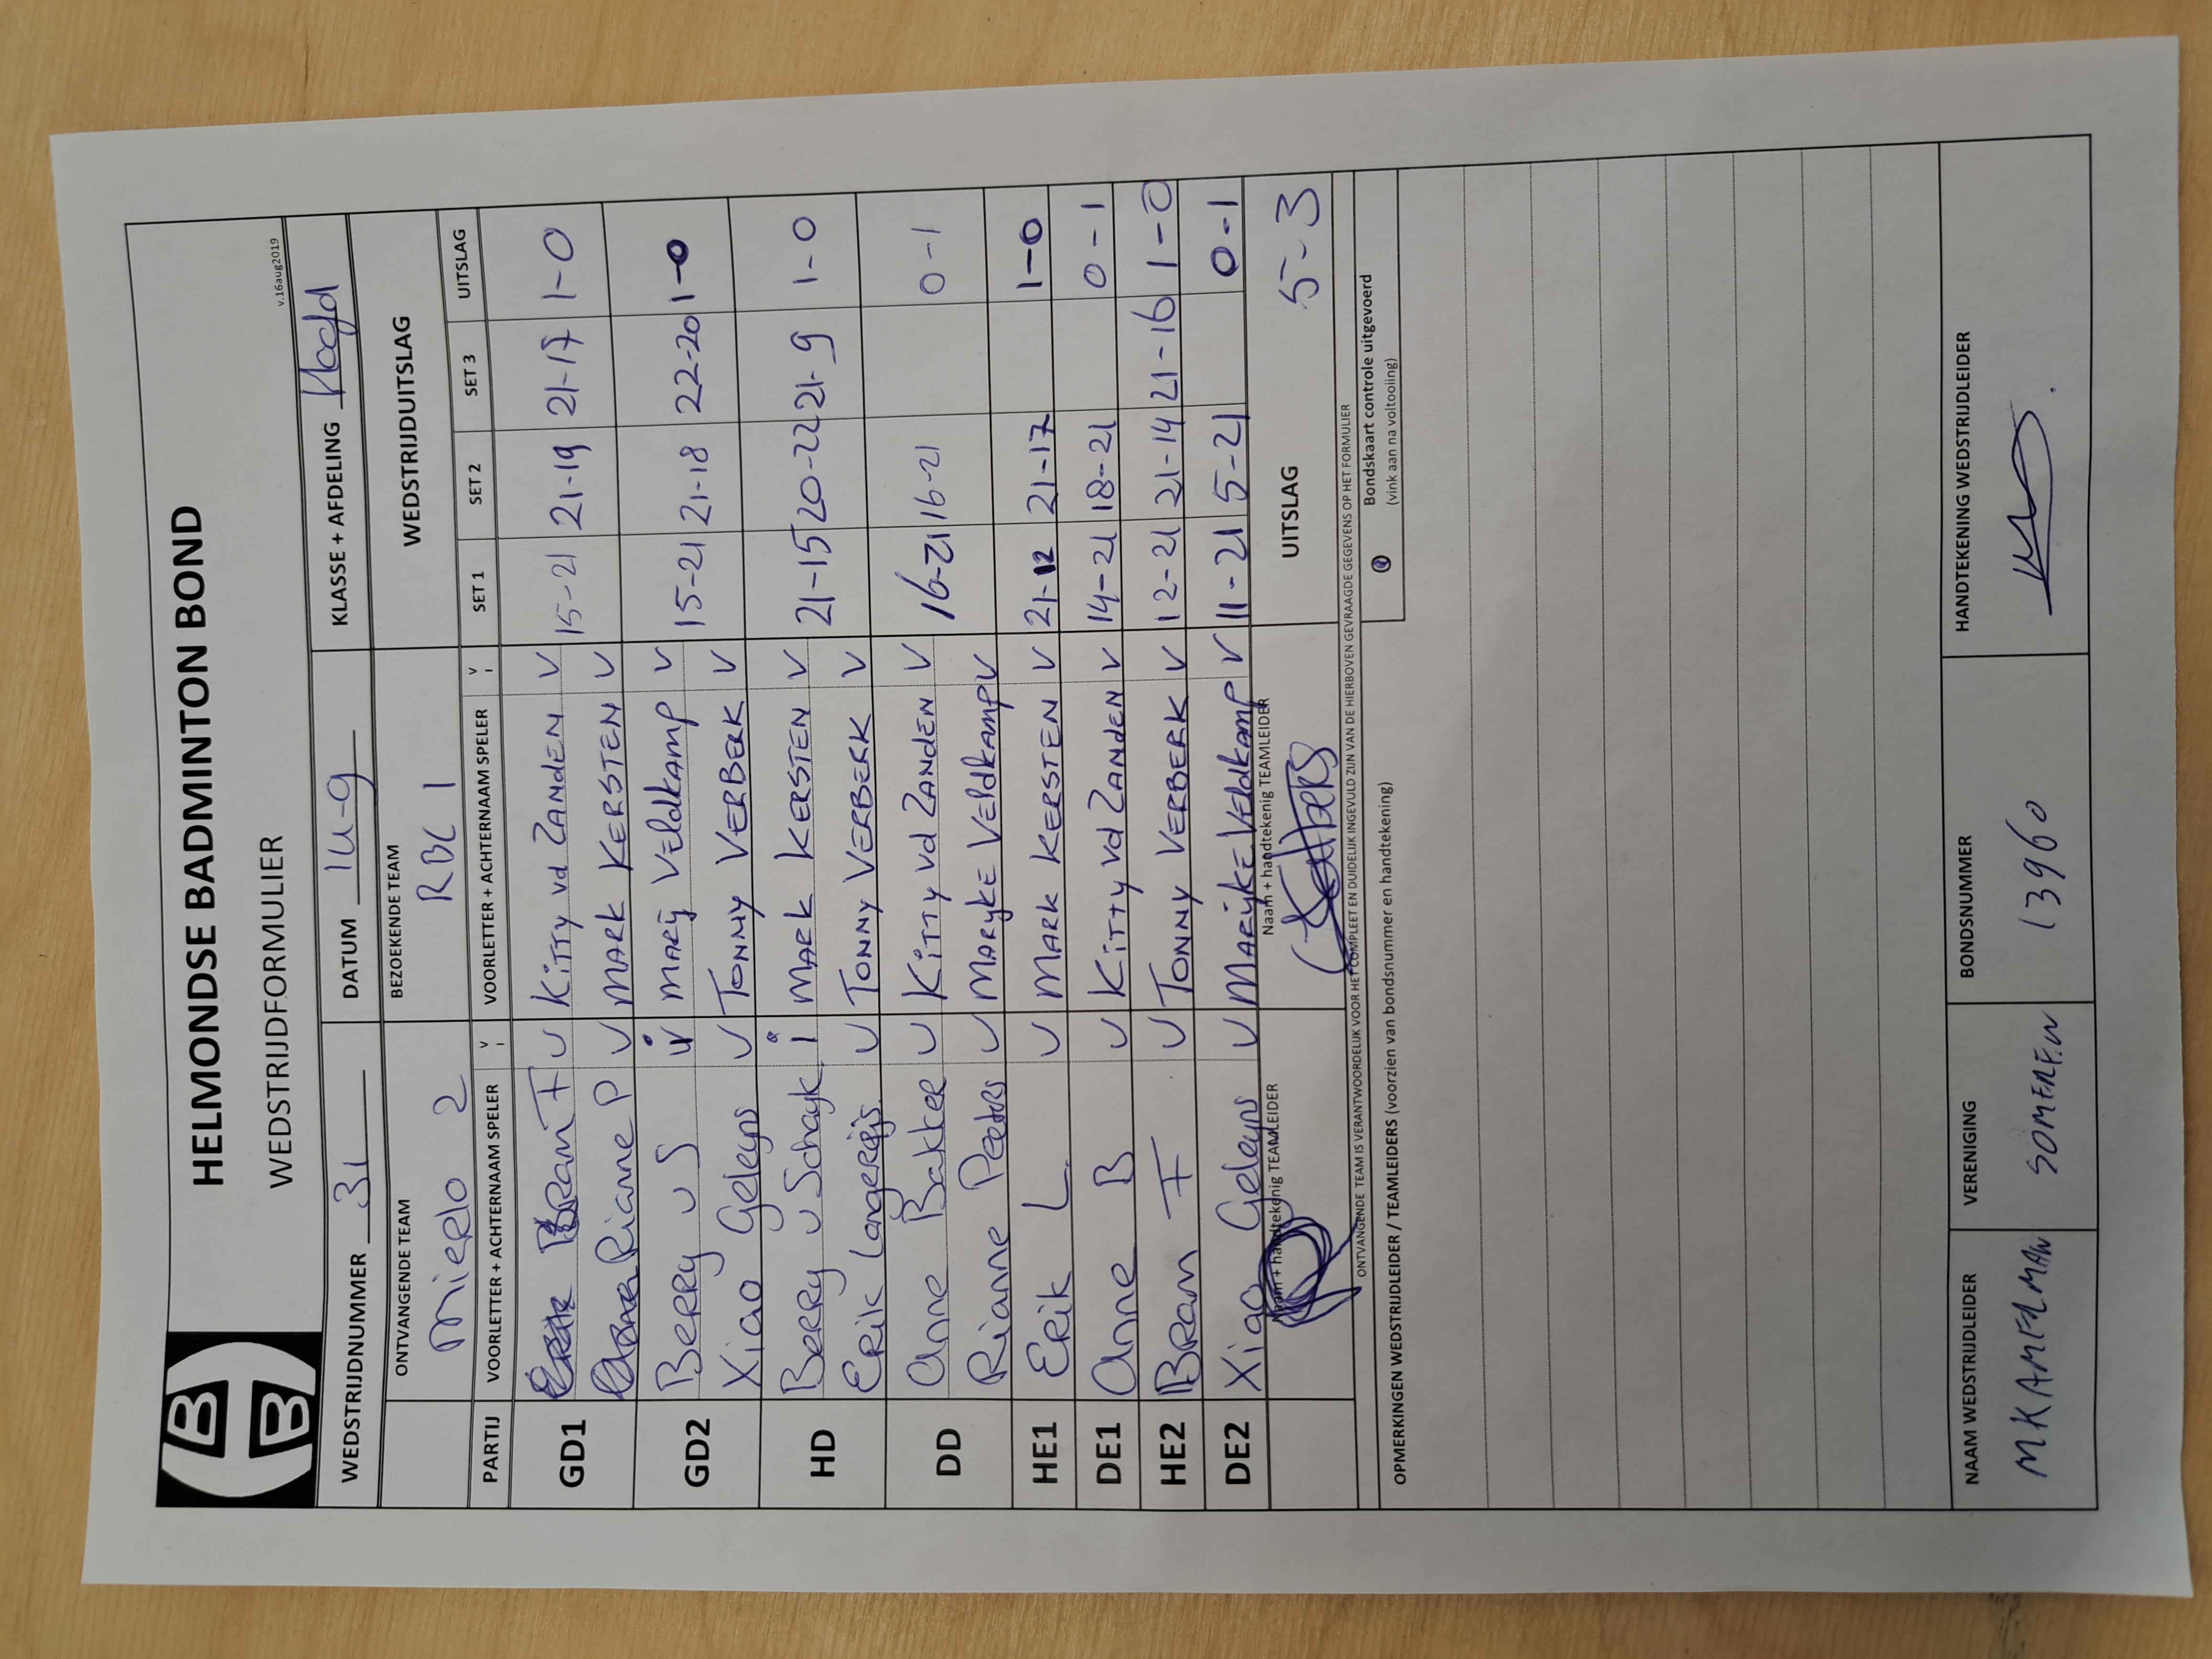 HELMONDSE BADMINTON BOND
WEDSTRIJDFORMULIER
v.16aug2019
WEDSTRIJDNUMMER 31 DATUM 14-9 KLASSE + AFDELING Hoofd
ONTVANGENDE TEAM BEZOEKENDE TEAM WEDSTRIJDUITSLAG
Mierlo 2 RBC 1
PARTIJ VOORLETTER + ACHTERNAAM SPELER V VOORLETTER + ACHTERNAAM SPELER V SET 1 SET 2 SET 3 UITSLAG
GD1 Bram F V Kitty vd Zanden V 15-21 21-19 21-17 1-0
Rianne P V Mark Kersten V
GD2 Berry v S Marij Veldkamp V 15-21 21-18 22-20 1-0
Xiao Geleyns V Tonny Verberk V
HD Berry v Schayk Mark Kersten V 21-15 20-22 21-9 1-0
Erik Langerijs V Tonny Verberk V
DD Anne Bakker V Kitty vd Zanden V 16-21 16-21 0-1
Rianne Peeters V Maryke Veldkamp V
HE1 Erik L V Mark Kersten V 21-12 21-17 1-0
DE1 Anne B V Kitty vd Zanden V 14-21 18-21 0-1
HE2 Bram F V Tonny Verberk V 12-21 21-14 21-16 1-0
DE2 Xiao Geleyns V Marijke Veldkamp V 11-21 5-21 0-1
Naam + handtekenig TEAMLEIDER Naam + handtekenig TEAMLEIDER UITSLAG 5-3
ONTVANGENDE TEAM IS VERANTWOORDELIJK VOOR HET COMPLEET EN DUIDELIJK INGEVULD ZIJN VAN DE HIERBOVEN GEVRAAGDE GEGEVENS OP HET FORMULIER
Bondskaart controle uitgevoerd
(vink aan na voltooiing)
OPMERKINGEN WEDSTRIJDLEIDER / TEAMLEIDERS (voorzien van bondsnummer en handtekening)
NAAM WEDSTRIJDLEIDER VERENIGING BONDSNUMMER HANDTEKENING WEDSTRIJDLEIDER
M KAMERMAN SOMEREN 13960